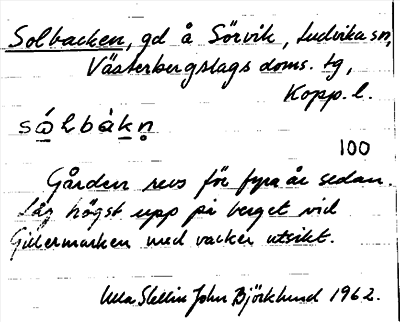 Solbacken, gd å Sörvik, Ludvika sn,
Västerbergslags doms. tg,
Kopp. l.
sólbàkn̥
100
Gården revs för fyra år sedan.
Låg högst upp på berget vid
Gillermarken med vacker utsikt.
Ulla Stellin John Björklund 1962.